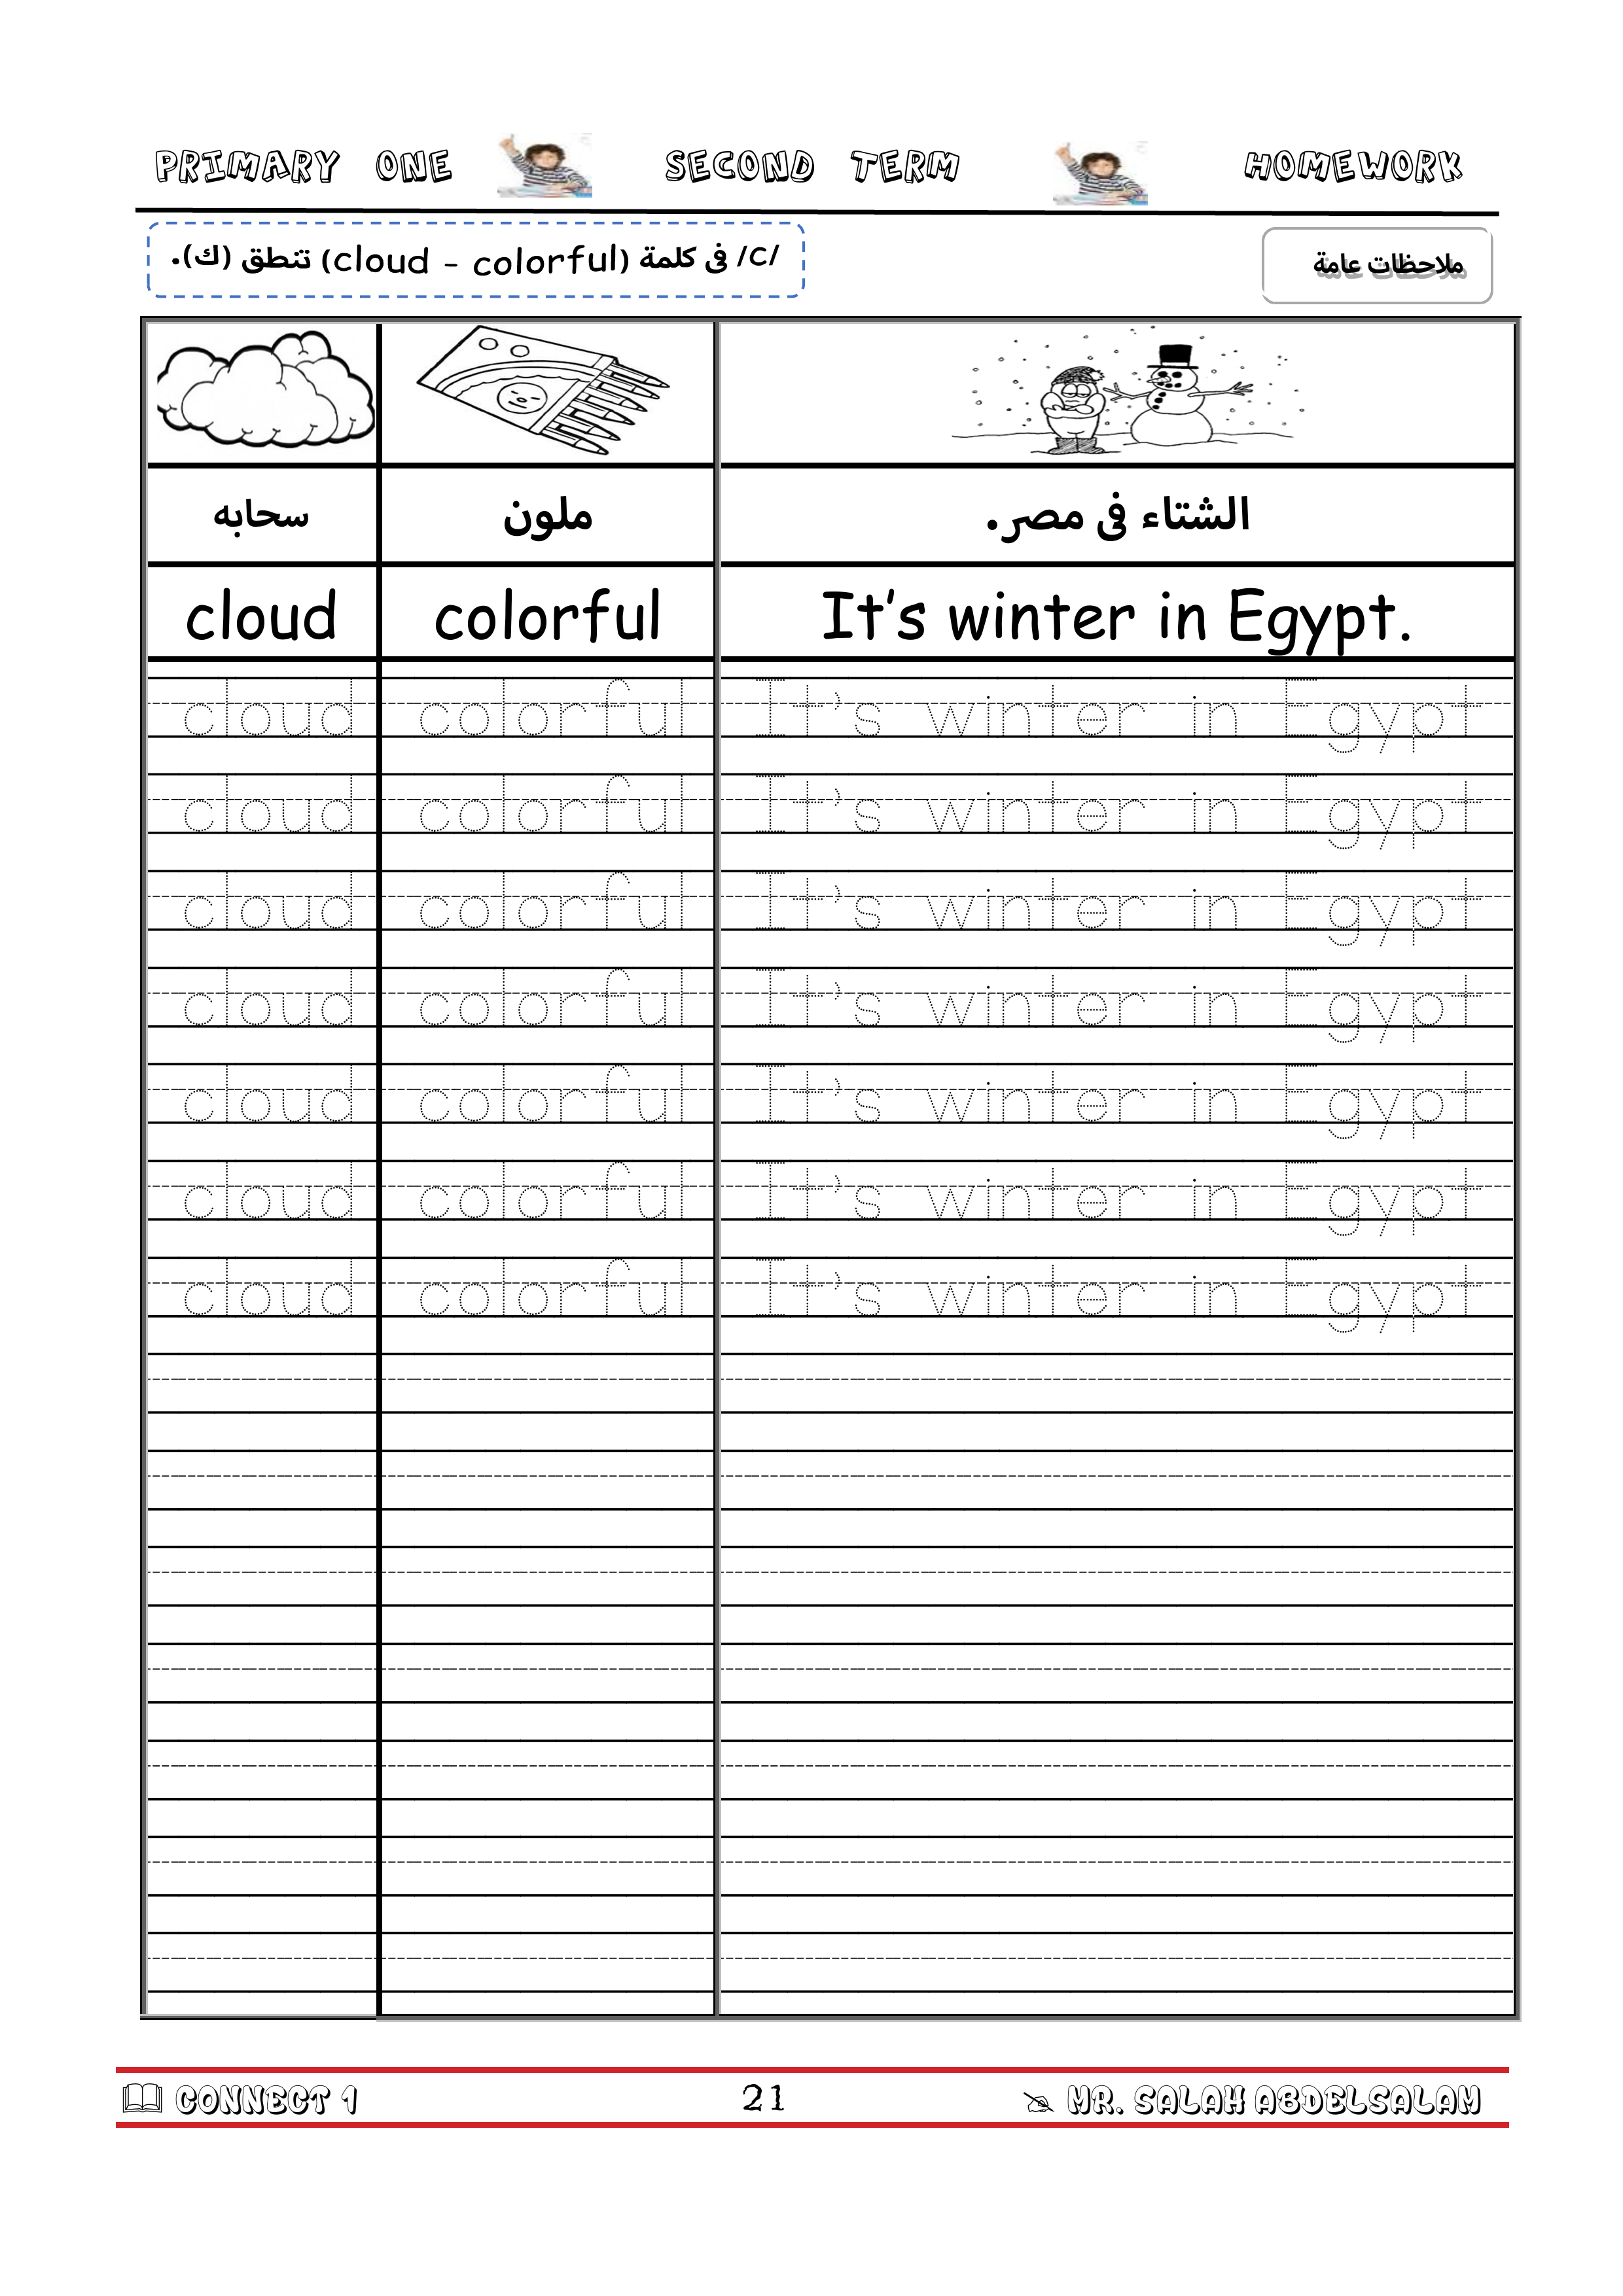 PRIMARY ONE SECOND TERM HOMEWORK
ملاحظات عامة
/c/ فى كلمة (cloud - colorful) تنطق (ك).
سحابه ملون الشتاء فى مصر.
cloud colorful It's winter in Egypt.
cloud colorful It's winter in Egypt
cloud colorful It's winter in Egypt
cloud colorful It's winter in Egypt
cloud colorful It's winter in Egypt
cloud colorful It's winter in Egypt
cloud colorful It's winter in Egypt
cloud colorful It's winter in Egypt
CONNECT 1 21 MR. SALAH ABDELSALAM